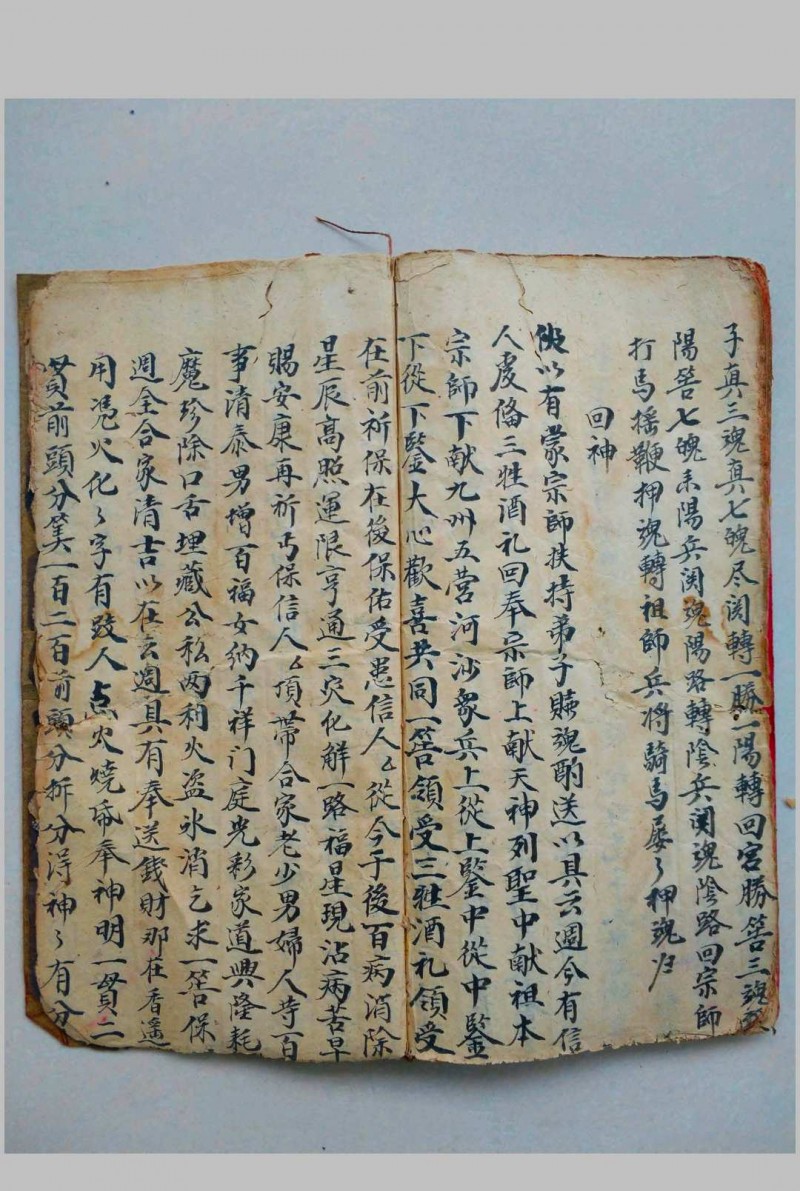 子真三魂真七魄尽関轉一勝一陽轉回宮勝筶三魂
陽筶七魄未陽兵関魂陽路轉陰兵関魂陰路回宗師
打馬搖鞭押魂轉祖師兵将騎馬屡々押魂归
回神
以有蒙宗師扶持弟子賍魂酌送以具云週今有信
人虔俻三牲酒礼回奉宗師上献天神列聖中献祖本
宗師下献九州五营河沙衆兵上從上鑒中從中鑒
下從下鑒大心歡喜共同一筶領受三牲酒礼領受
在前祈保在後保佑受患信人厶從今于後百病消除
星辰高照運限亨通三灾化解一路福星現沾病苦早
賜安康再祈丐保信人厶頂帶合家老少男婦人等百
事清泰男增百福女納千祥门庭光彩家道興隆耗
魔珍除口舌埋藏公私两利火盗氷消乞求一筶保
週全合家清吉以在云週具有奉送錢財那在香遙
用凴火化々字有跂人点火燒帋奉神明一貫二
貫前頭分筭一百二百前頭分拆分淂神々有分